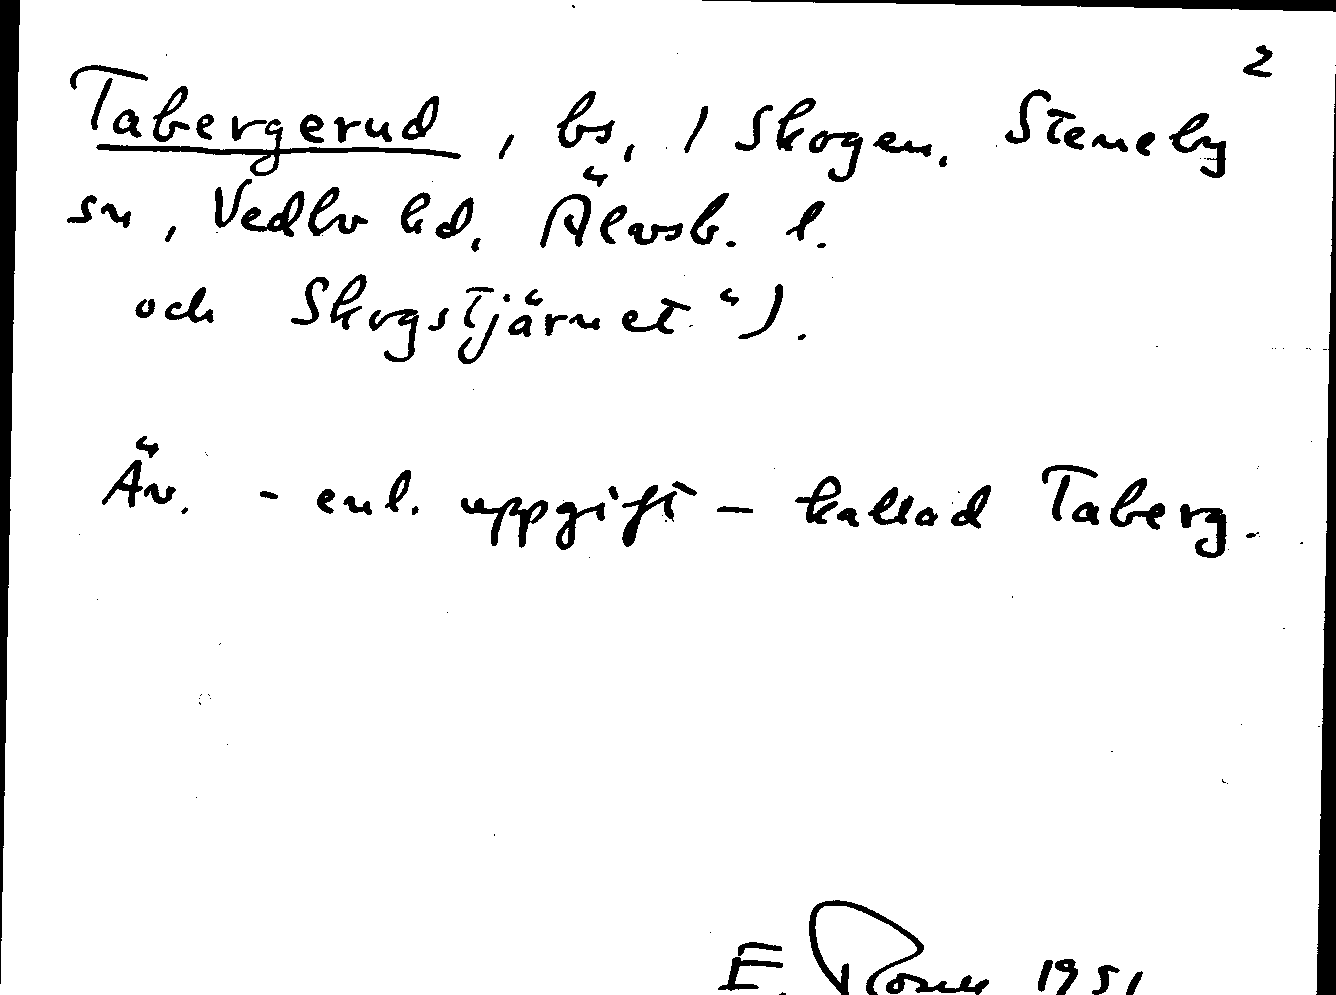 2
Tabergerud, bs, / Skogen, Steneby
sn, Vedbo hd, Älvsb. l.
och Skogstjärnet").
Äv. - enl. uppgift - kallad Taberg.
E. 1951